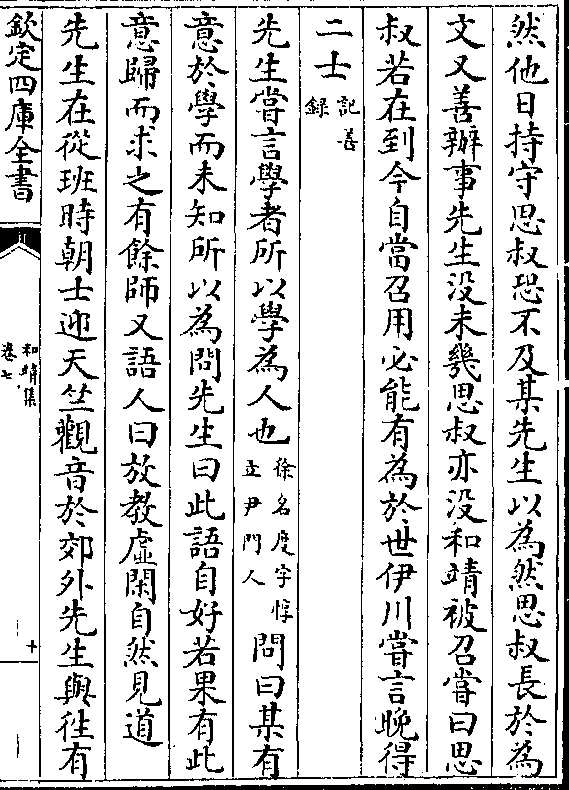 然他日持守思叔恐不及某先生以為然思叔長於為
文又善辦事先生没未幾思叔亦没和靖被召嘗曰思
叔若在到今自當召用必能有為於世伊川嘗言晚得
二士記善錄
先生嘗言學者所以學為人也徐名度字惇立尹門人問曰某有
意於學而未知所以為問先生曰此語自好若果有此
意歸而求之有餘師又語人曰放教虛閑自然見道
先生在從班時朝士迎天竺觀音於郊外先生與徃有
欽定四庫全書
和靖集
卷七
十